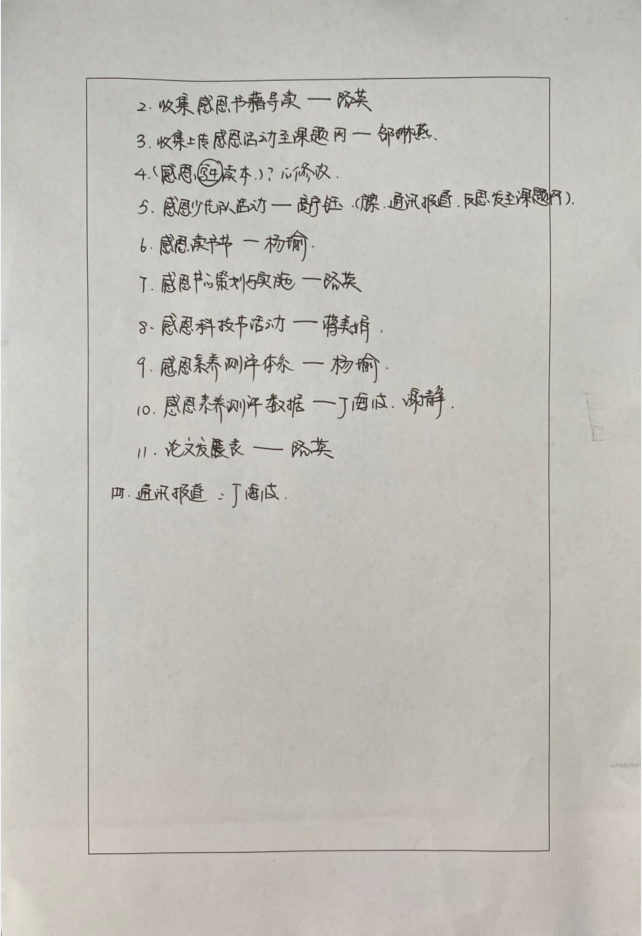 2. 收集感恩书籍导读 — 路英
3. 收集上传感恩活动至课题网 — 邹琳燕.
4.(感恩 读本.)? 修改.
5. 感恩少先队活动 — 钰.( 通讯报道.反思.发至课题网).
6. 感恩读书节 — 杨瑜.
7. 感恩节 策划与实施 — 路英
8. 感恩科技节活动 — 蒋美娟.
9. 感恩素养测评体系 — 杨瑜.
10. 感恩素养测评数据 — 丁海波. 谢静.
11. 论文发展表 — 路英
四. 通讯报道:丁海波.